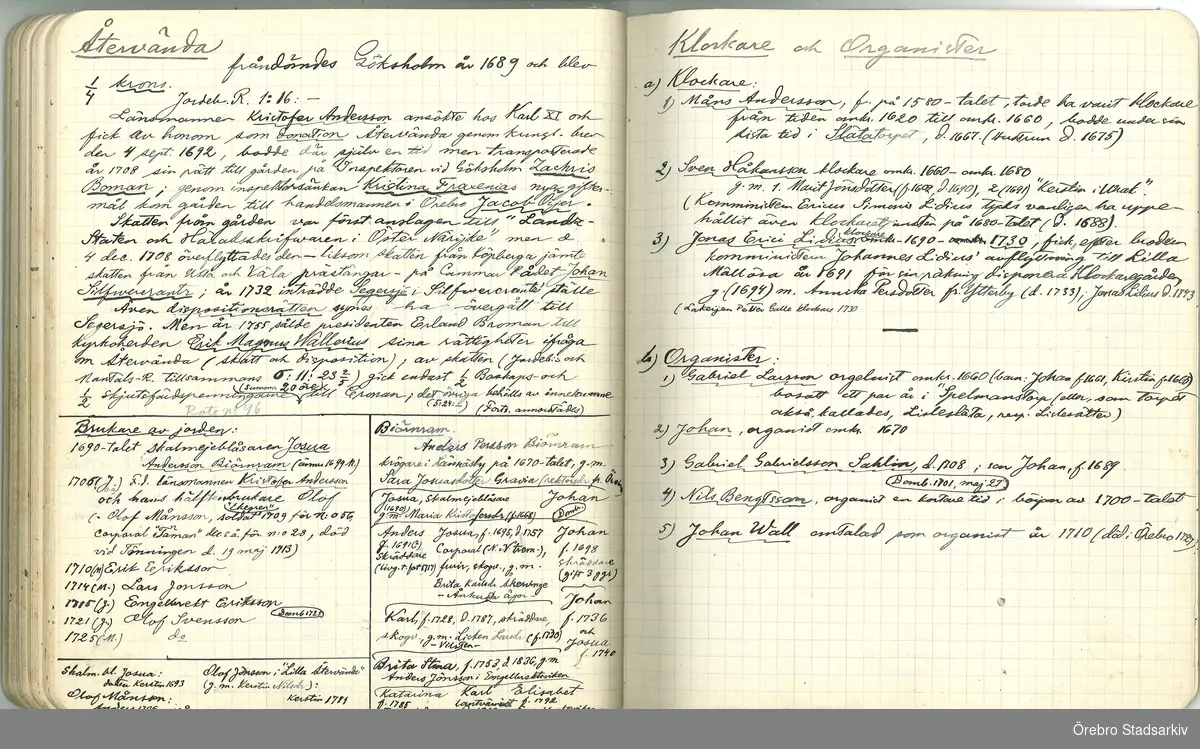 Återvända
fråndömdes Göksholm år 1689 och blev
1/4 krono.
Jordeb. R. 1:16: —
Länsmannen Kristofer Andersson ansökte hos Karl XI och
fick av honom som donation Återvända genom kungl. brev
den 4 sept. 1692, bodde där själv en tid men transporterade
år 1708 sin rätt till gården på Inspektoren vid Göksholm Zachris
Boman; genom inspektorsänkan Kristina Fraxenias nya gifter-
mål kom gården till handelsmannen i Örebro Jacob
Skatten från gården var först anslagen till "Landz-
Staten och Häradsskrifwaren i Öster Närijke" men d.
4 dec. 1708 överflyttades den — liksom skatten från Törberga jämte
skatten från Ulla och Väla prästängar — på Cammar Rådet Johan
Silfwercrantz; år 1732 inträdde Segersjö i Silfwercrantz' ställe
Även dispositionsrätten synes ha övergått till
Segersjö. Men år 1755 sålde presidenten Erland Broman till
kyrkoherden Erik Magnus Wallerius sina rättigheter ifråga
om Återvända (skatt och disposition); av skatten (Jordeb.- och
Mantals-R. tillsammans 6:11:23 2/5) gick endast 1/2 Boskaps- och
1/2 Skjutsfärdspenningarne (Summa 20 öre) till Cronan; det övriga behålls av innehavarne
Rote nr 46 (5:24:-) (Forts. annorstädes)
Brukare av jorden:
1690-talet Skalmejeblåsaren Josua
Andersson Biörnram (ännu 1699 M.)
1706 (J.) f.d. länsmannen Kristofer Andersson
och hans hälftenbrukare Olof
(- Olof Månsson, soldat 1709 för n:o 56,
corporal "Täman" dec. å. för n:o 28, död
vid Tönningen d. 19 maj 1713)
1710 (M) Erik Eriksson
1714 (M.) Lars Jonsson
1715 (J.) Engelbrekt Eriksson
1721 (J.) Olof Svensson (Domb 1721)
1725 (M.) do
Skalm. bl. Josua:
dotter Kerstin 1693
Olof Månsson:
Olof Jönsson i "Lilla Återvända"
(g. m. Kerstin Nilsdr):
Kerstin 1781
Biörnram.
Anders Persson Biörnram
krögare i Lännäsby på 1670-talet, g.m.
Sara Josuasdotter Gravia (rektorsdr. fr. Örebro)
Josua, Skalmejeblåsare Johan
(1690) g.m. Maria Kristofersdr (f. 1668) (Domb.)
Anders Josua, f. 1695, d. 1757 Johan
f. 1691(?) Corporal f. 1698
Skräddare furir, skogv., g. m. skräddare
Brita Karlsdr Skevinge (gift 3 ggr)
Johan
Karl, f. 1728, d. 1787, skräddare, f. 1736
skogv., g.m. Lisken Larsdr (f. 1730) och
Josua
f. 1740
Brita Stina, f. 1753, d. 1836, g.m
Anders Jönsson i Engelbrektviken
Katarina Karl Elisabet
f. 1785 lantvärnist f. 1792
Klockare och Organister
a) Klockare:
1) Måns Andersson, f. på 1580-talet, torde ha varit klockare
från tiden omkr. 1620 till omkr. 1660, bodde under sin
sista tid i Slåtatorpet, d. 1667. (Hustrun d. 1675)
2) Sven Håkansson klockare omkr. 1660 – omkr. 1680
g.m. 1. Marit Jönsdotter (f. 1602, d. 1690), 2 (1691) "Kerstin i Wrak".
(Komministern Ericus Simonis Lidius tycks vanligen ha uppe-
hållit även klockaretjänsten på 1680-talet (d. 1688).
3) Jonas Erici Lidius klockare omkr. 1690 – omkr. 1730; fick, efter brodern
komministern Johannes Lidius' avflyttning till Lilla
Mellösa år 1691 för sin räkning disponera Klockaregården
g (1694) m. Annika Persdotter fr. Ytterby (d. 1733); Jonas Lidius d. 1743
(Lakejen Petter Galle klockare 1730
b) Organister:
1) Gabriel Larsson orgelnist omkr. 1660 (barn: Johan f. 1661, Kirstin f. 1663)
bosatt ett par år i "Spelmanstorp (eller, som torpet
också kallades, Lideslåta, resp. Lidesätter)
2) Johan, organist omkr. 1670
3) Gabriel Gabrielsson Sahlin, d. 1708; son Johan, f. 1689
(Domb. 1701, maj 27)
4) Nils Bengtsson, organist en kortare tid i början av 1700-talet
5) Johan Wall omtalad som organist år 1710 (död i Örebro
Örebro Stadsarkiv